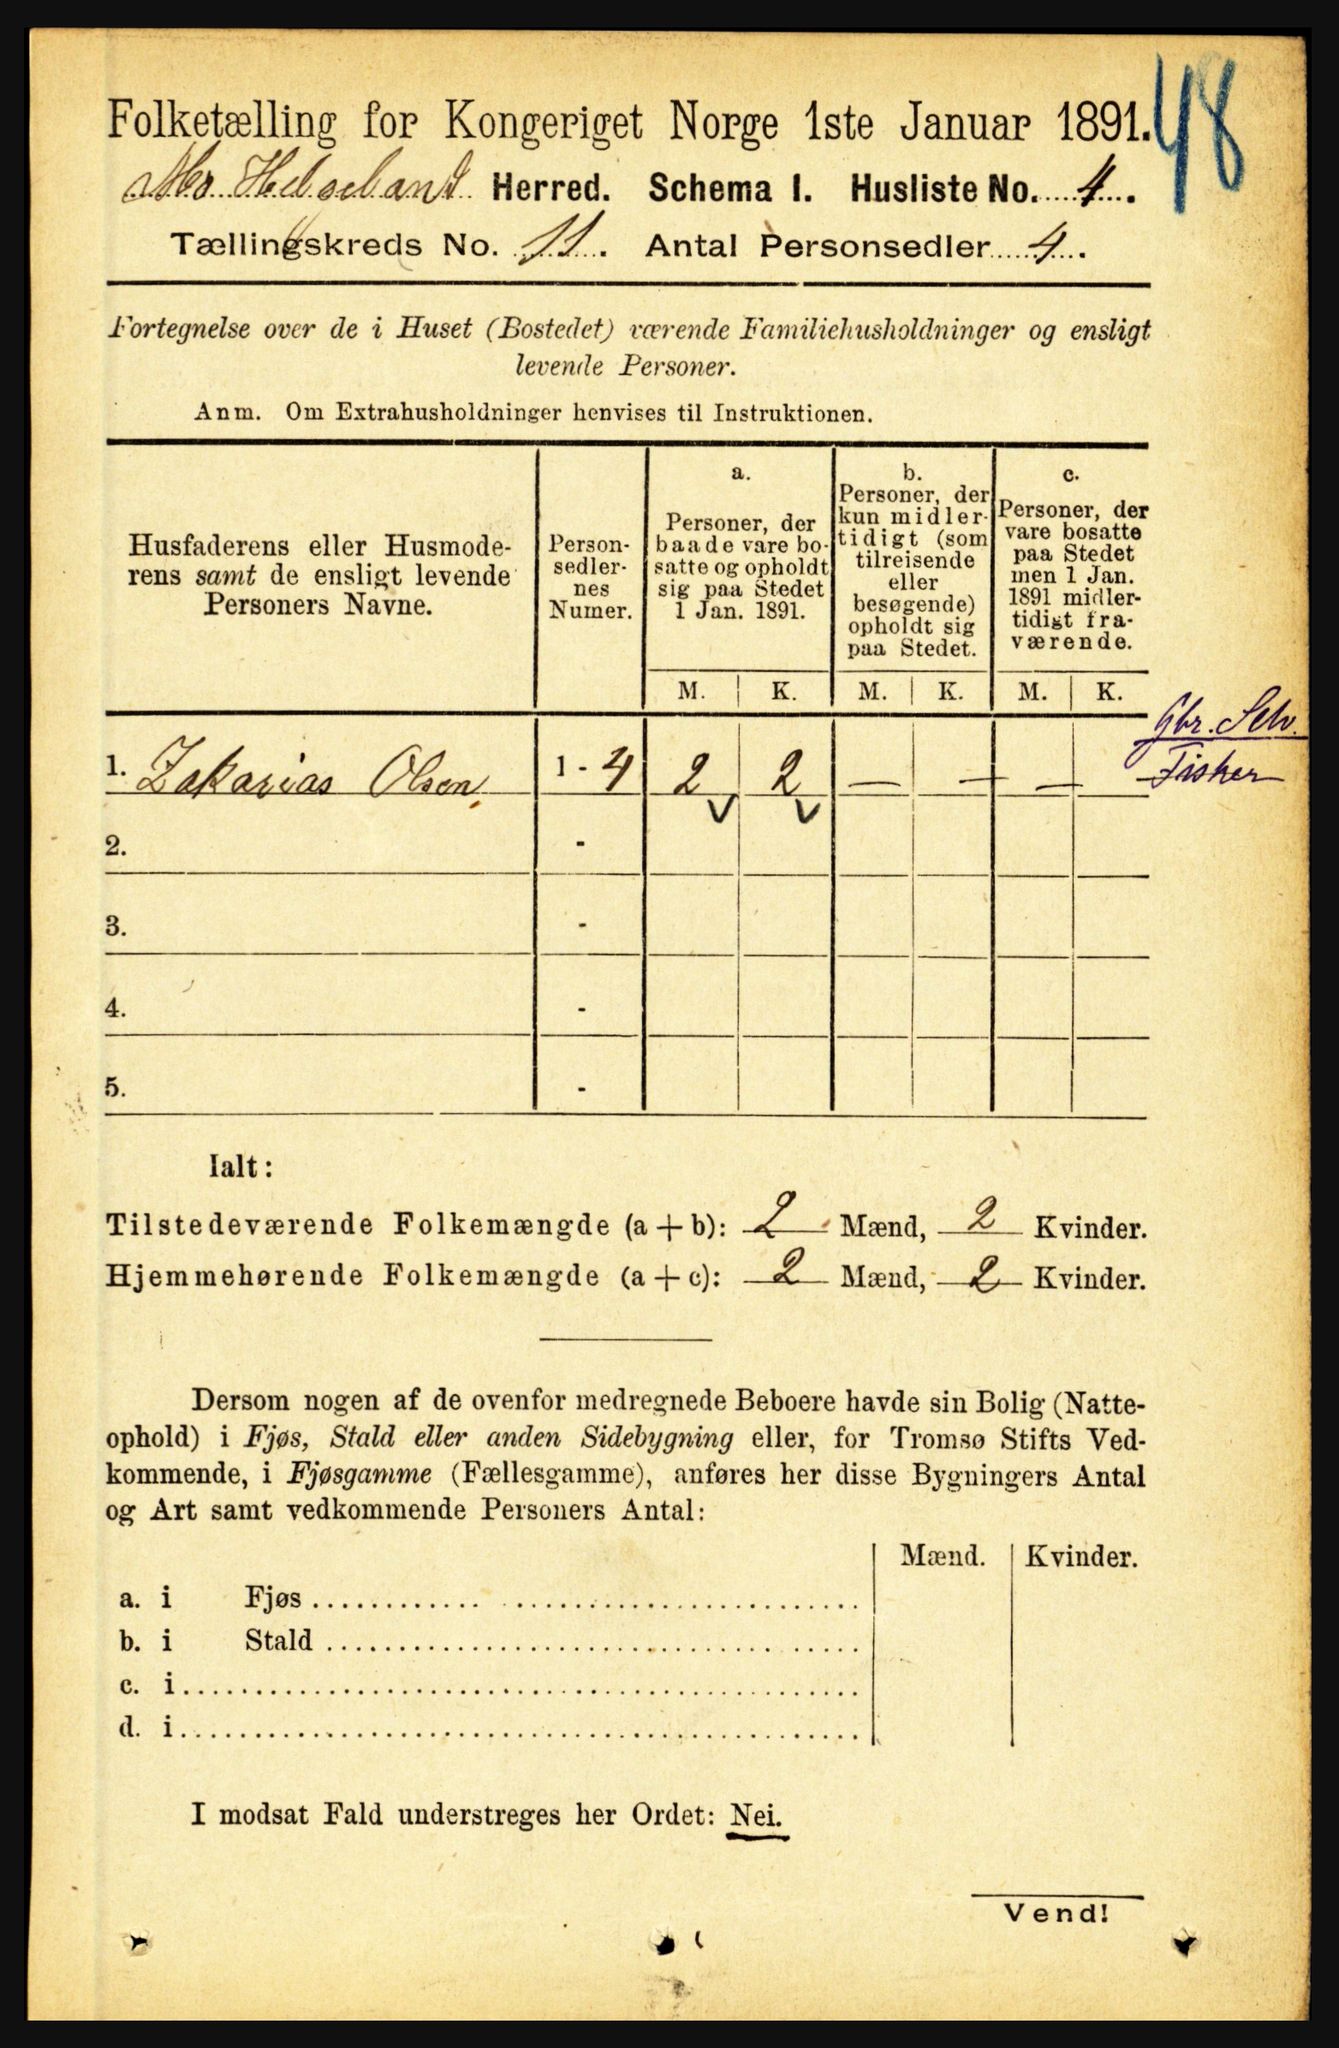 48
Folketælling for Kongeriget Norge 1ste Januar 1891.
Herred. Schema I. Husliste No. 4.
Tællingskreds No. 11. Antal Personsedler 4.
Fortegnelse over de i Huset (Bostedet) værende Familiehusholdninger og ensligt
levende Personer.
Anm. Om Extrahusholdninger henvises til Instruktionen.
Husfaderens eller Husmode-
rens samt de ensligt levende
Personers Navne.
Person-
sedler-
nes
Numer.
a.
Personer, der
baade vare bo-
satte og opholdt
sig paa Stedet
1 Jan. 1891.
b.
Personer, der
kun midler-
tidigt (som
tilreisende
eller
besøgende)
opholdt sig
paa Stedet.
c.
Personer, der
vare bosatte
paa Stedet
men 1 Jan.
1891 midler-
tidigt fra-
værende.
M. K. M. K. M. K.
Gbr. Selv.
Fisker
1. Zakarias Olsen 1 - 4 2 2 — — —
v v
2. -
3. -
4. -
5. -
Ialt:
Tilstedeværende Folkemængde (a + b): 2 Mænd, 2 Kvinder.
Hjemmehørende Folkemængde (a + c): 2 Mænd, 2 Kvinder.
Dersom nogen af de ovenfor medregnede Beboere havde sin Bolig (Natte-
ophold) i Fjøs, Stald eller anden Sidebygning eller, for Tromsø Stifts Ved-
kommende, i Fjøsgamme (Fællesgamme), anføres her disse Bygningers Antal
og Art samt vedkommende Personers Antal:
Mænd. Kvinder.
a. i Fjøs
b. i Stald
c. i
d. i
I modsat Fald understreges her Ordet: Nei.
Vend!